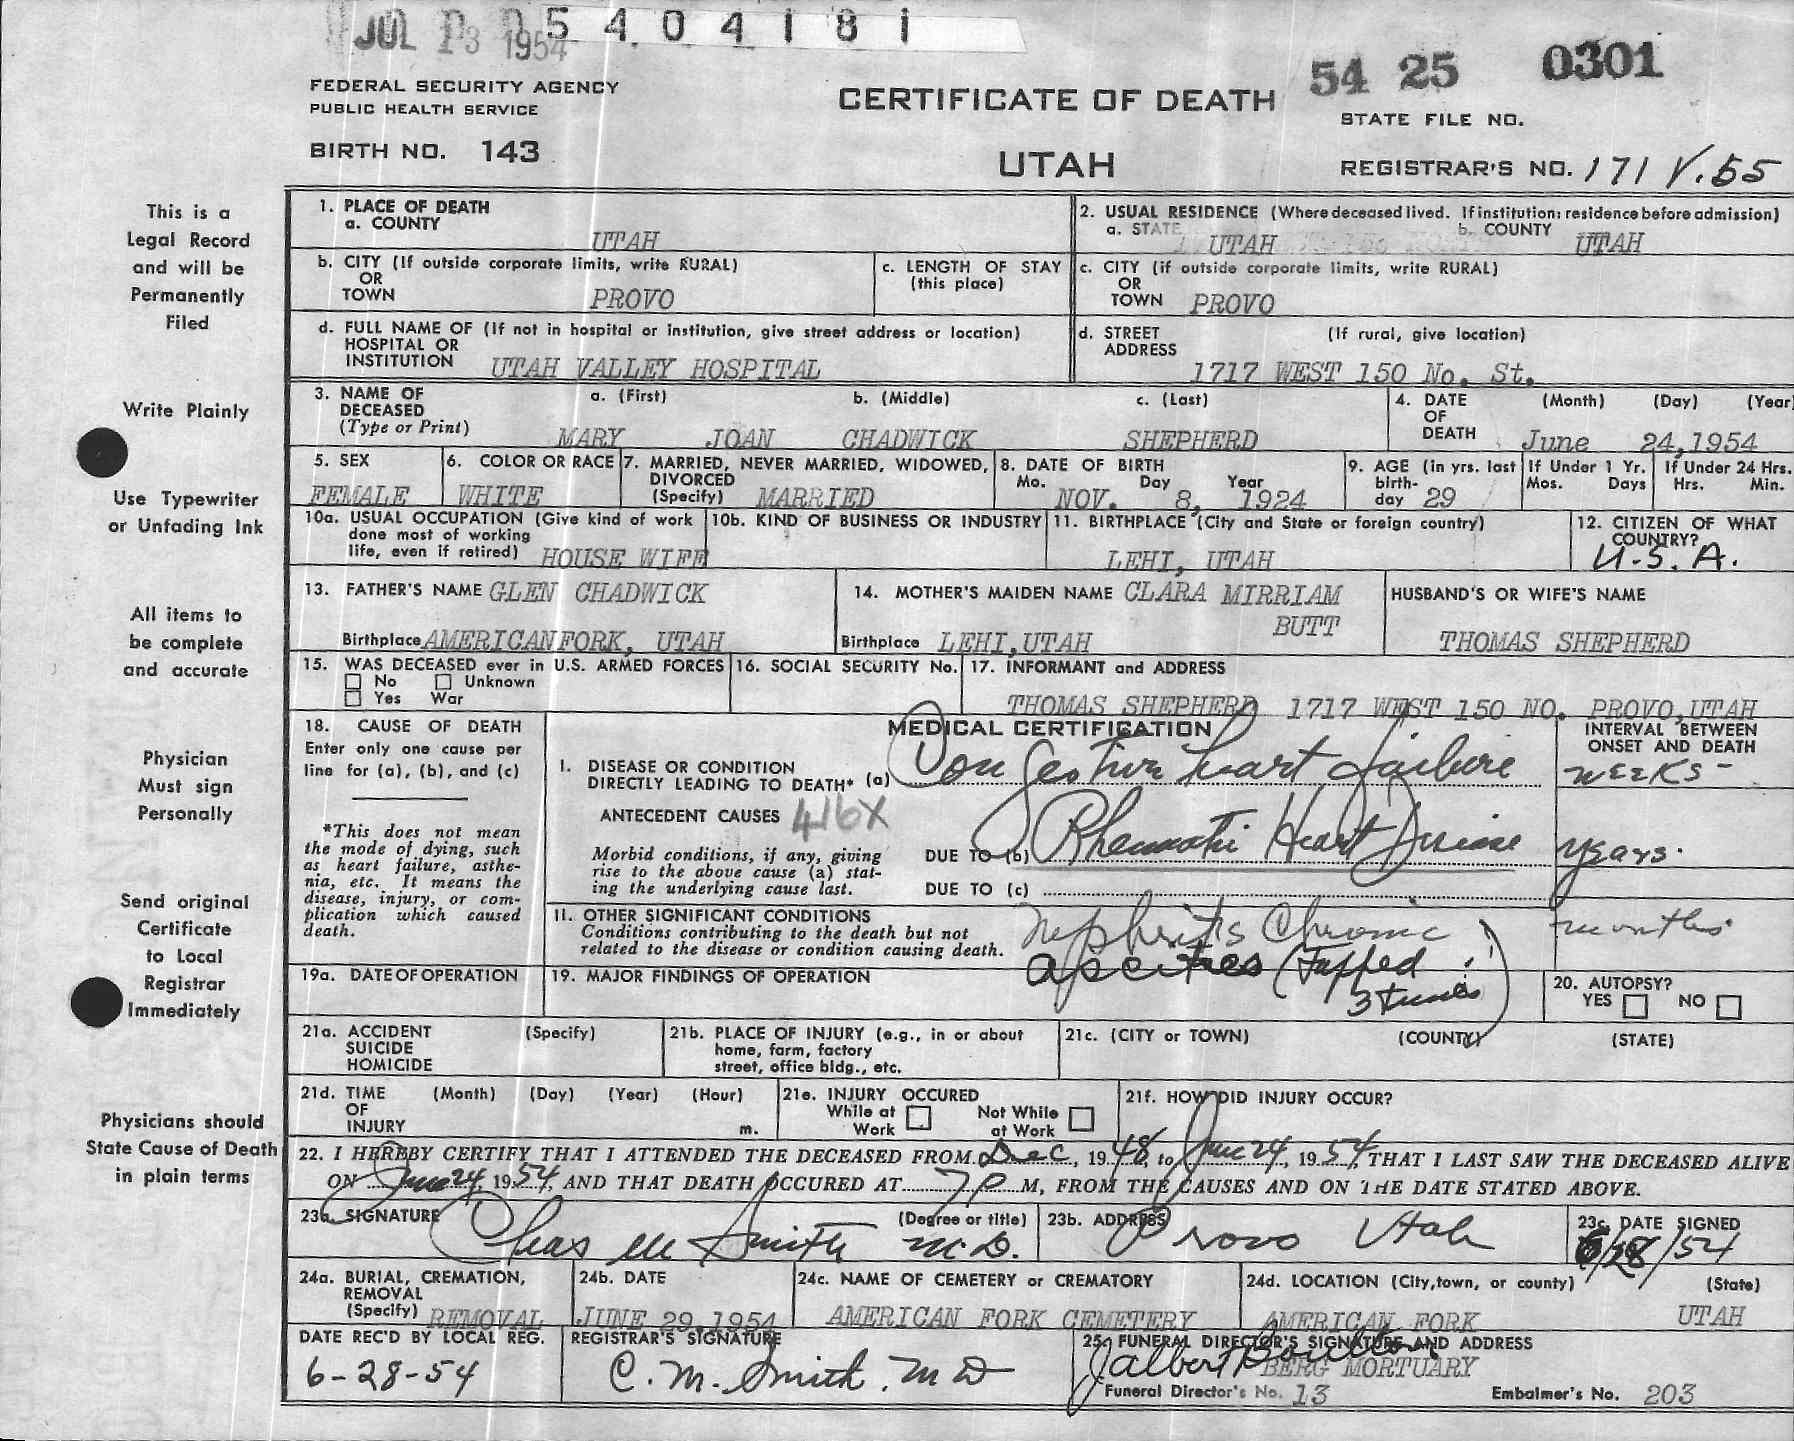 JUL 13 1954
5 4 0 4 1 8 1
54 25 0301
FEDERAL SECURITY AGENCY
PUBLIC HEALTH SERVICE
CERTIFICATE OF DEATH
STATE FILE NO.
BIRTH NO. 143
UTAH
REGISTRAR'S NO. 171 V.55
This is a
Legal Record
and will be
Permanently
Filed
Write Plainly
Use Typewriter
or Unfading Ink
All items to
be complete
and accurate
Physician
Must sign
Personally
Send original
Certificate
to Local
Registrar
Immediately
Physicians should
State Cause of Death
in plain terms
1. PLACE OF DEATH
a. COUNTY
UTAH
2. USUAL RESIDENCE (Where deceased lived. If institution: residence before admission)
a. STATE UTAH b. COUNTY UTAH
b. CITY (If outside corporate limits, write RURAL)
OR
TOWN PROVO
c. LENGTH OF STAY
(this place)
c. CITY (if outside corporate limits, write RURAL)
OR
TOWN PROVO
d. FULL NAME OF (If not in hospital or institution, give street address or location)
HOSPITAL OR
INSTITUTION UTAH VALLEY HOSPITAL
d. STREET (If rural, give location)
ADDRESS
1717 WEST 150 No. St.
3. NAME OF DECEASED (Type or Print)
a. (First) b. (Middle) c. (Last)
MARY JOAN CHADWICK SHEPHERD
4. DATE OF DEATH (Month) (Day) (Year)
June 24,1954
5. SEX
FEMALE
6. COLOR OR RACE
WHITE
7. MARRIED, NEVER MARRIED, WIDOWED,
DIVORCED
(Specify) MARRIED
8. DATE OF BIRTH
Mo. Day Year
NOV. 8, 1924
9. AGE (in yrs. last
birth-
day 29
If Under 1 Yr.
Mos. Days
If Under 24 Hrs.
Hrs. Min.
10a. USUAL OCCUPATION (Give kind of work
done most of working
life, even if retired) HOUSE WIFE
10b. KIND OF BUSINESS OR INDUSTRY
11. BIRTHPLACE (City and State or foreign country)
LEHI, UTAH
12. CITIZEN OF WHAT
COUNTRY?
U.S.A.
13. FATHER'S NAME GLEN CHADWICK
Birthplace AMERICANFORK, UTAH
14. MOTHER'S MAIDEN NAME CLARA MIRRIAM
BUTT
Birthplace LEHI,UTAH
HUSBAND'S OR WIFE'S NAME
THOMAS SHEPHERD
15. WAS DECEASED ever in U.S. ARMED FORCES
No Unknown
Yes War
16. SOCIAL SECURITY No.
17. INFORMANT and ADDRESS
THOMAS SHEPHERD 1717 WEST 150 NO. PROVO,UTAH
18. CAUSE OF DEATH
Enter only one cause per
line for (a), (b), and (c)
*This does not mean
the mode of dying, such
as heart failure, asthe-
nia, etc. It means the
disease, injury, or com-
plication which caused
death.
MEDICAL CERTIFICATION
INTERVAL BETWEEN
ONSET AND DEATH
I. DISEASE OR CONDITION
DIRECTLY LEADING TO DEATH* (a) Congestive heart failure
WEEKS-
ANTECEDENT CAUSES 416X
Morbid conditions, if any, giving
rise to the above cause (a) stat-
ing the underlying cause last.
DUE TO (b) Rheumatic Heart Disease
years.
DUE TO (c)
II. OTHER SIGNIFICANT CONDITIONS
Conditions contributing to the death but not
related to the disease or condition causing death.
Nephritis Chronic
months
ascites (Tapped
3 times)
19a. DATE OF OPERATION
19. MAJOR FINDINGS OF OPERATION
20. AUTOPSY?
YES NO
21a. ACCIDENT (Specify)
SUICIDE
HOMICIDE
21b. PLACE OF INJURY (e.g., in or about
home, farm, factory
street, office bldg., etc.
21c. (CITY or TOWN) (COUNTY) (STATE)
21d. TIME (Month) (Day) (Year) (Hour)
OF
INJURY m.
21e. INJURY OCCURED
While at Work Not While at Work
21f. HOW DID INJURY OCCUR?
22. I HEREBY CERTIFY THAT I ATTENDED THE DECEASED FROM Dec, 1948, to June 24, 1954, THAT I LAST SAW THE DECEASED ALIVE
ON June 24, 1954, AND THAT DEATH OCCURED AT 7P M, FROM THE CAUSES AND ON THE DATE STATED ABOVE.
23a. SIGNATURE (Degree or title)
Chas M Smith M.D.
23b. ADDRESS
Provo Utah
23c. DATE SIGNED
6/28/54
24a. BURIAL, CREMATION,
REMOVAL
(Specify) REMOVAL
24b. DATE
JUNE 29,1954
24c. NAME OF CEMETERY or CREMATORY
AMERICAN FORK CEMETERY
24d. LOCATION (City,town, or county) (State)
AMERICAN FORK UTAH
DATE REC'D BY LOCAL REG.
6-28-54
REGISTRAR'S SIGNATURE
C. M. Smith. M D
25. FUNERAL DIRECTOR'S SIGNATURE AND ADDRESS
BERG MORTUARY
Funeral Director's No. 13 Embalmer's No. 203